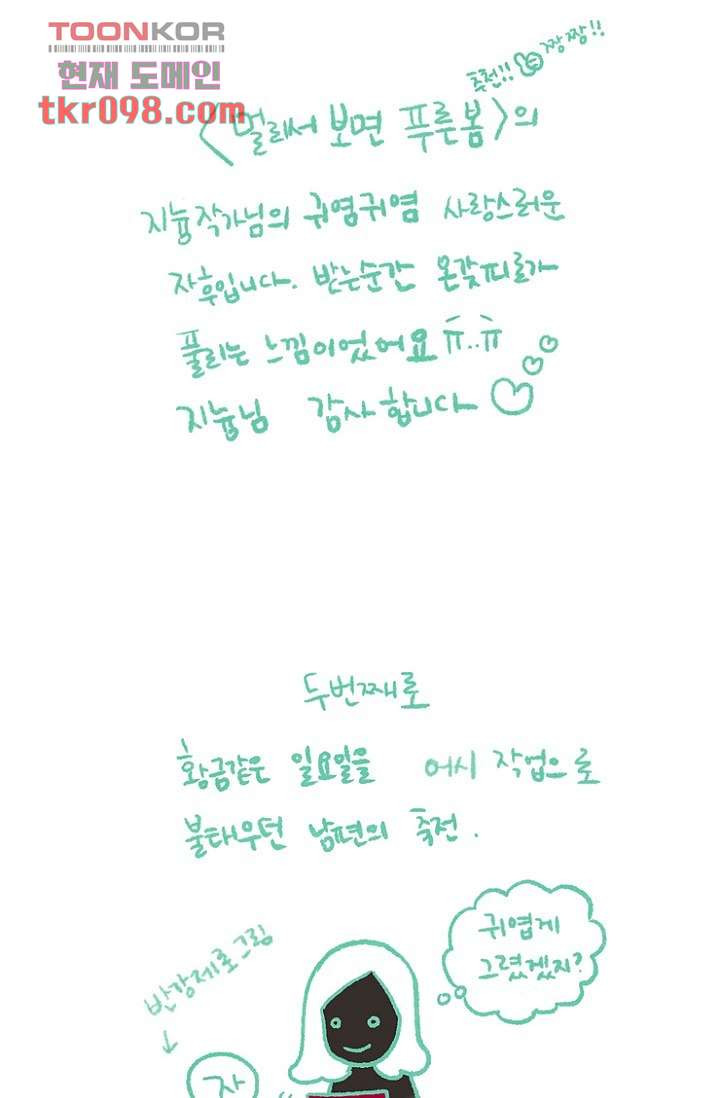 TOONKOR
현재 도메인
tkr098.com
축전!! 짱짱!!
<멀리서 보면 푸른봄>의
지늉작가님의 귀염귀염 사랑스러운
자후입니다. 받는순간 온갖피로가
풀리는 느낌이었어요 ㅠ..ㅠ
지늉님 감사합니다
두번째로
황금같은 일요일을 어시 작업으로
불태우던 남편의 축전.
귀엽게
그렸겠지?
반강제로그림
자